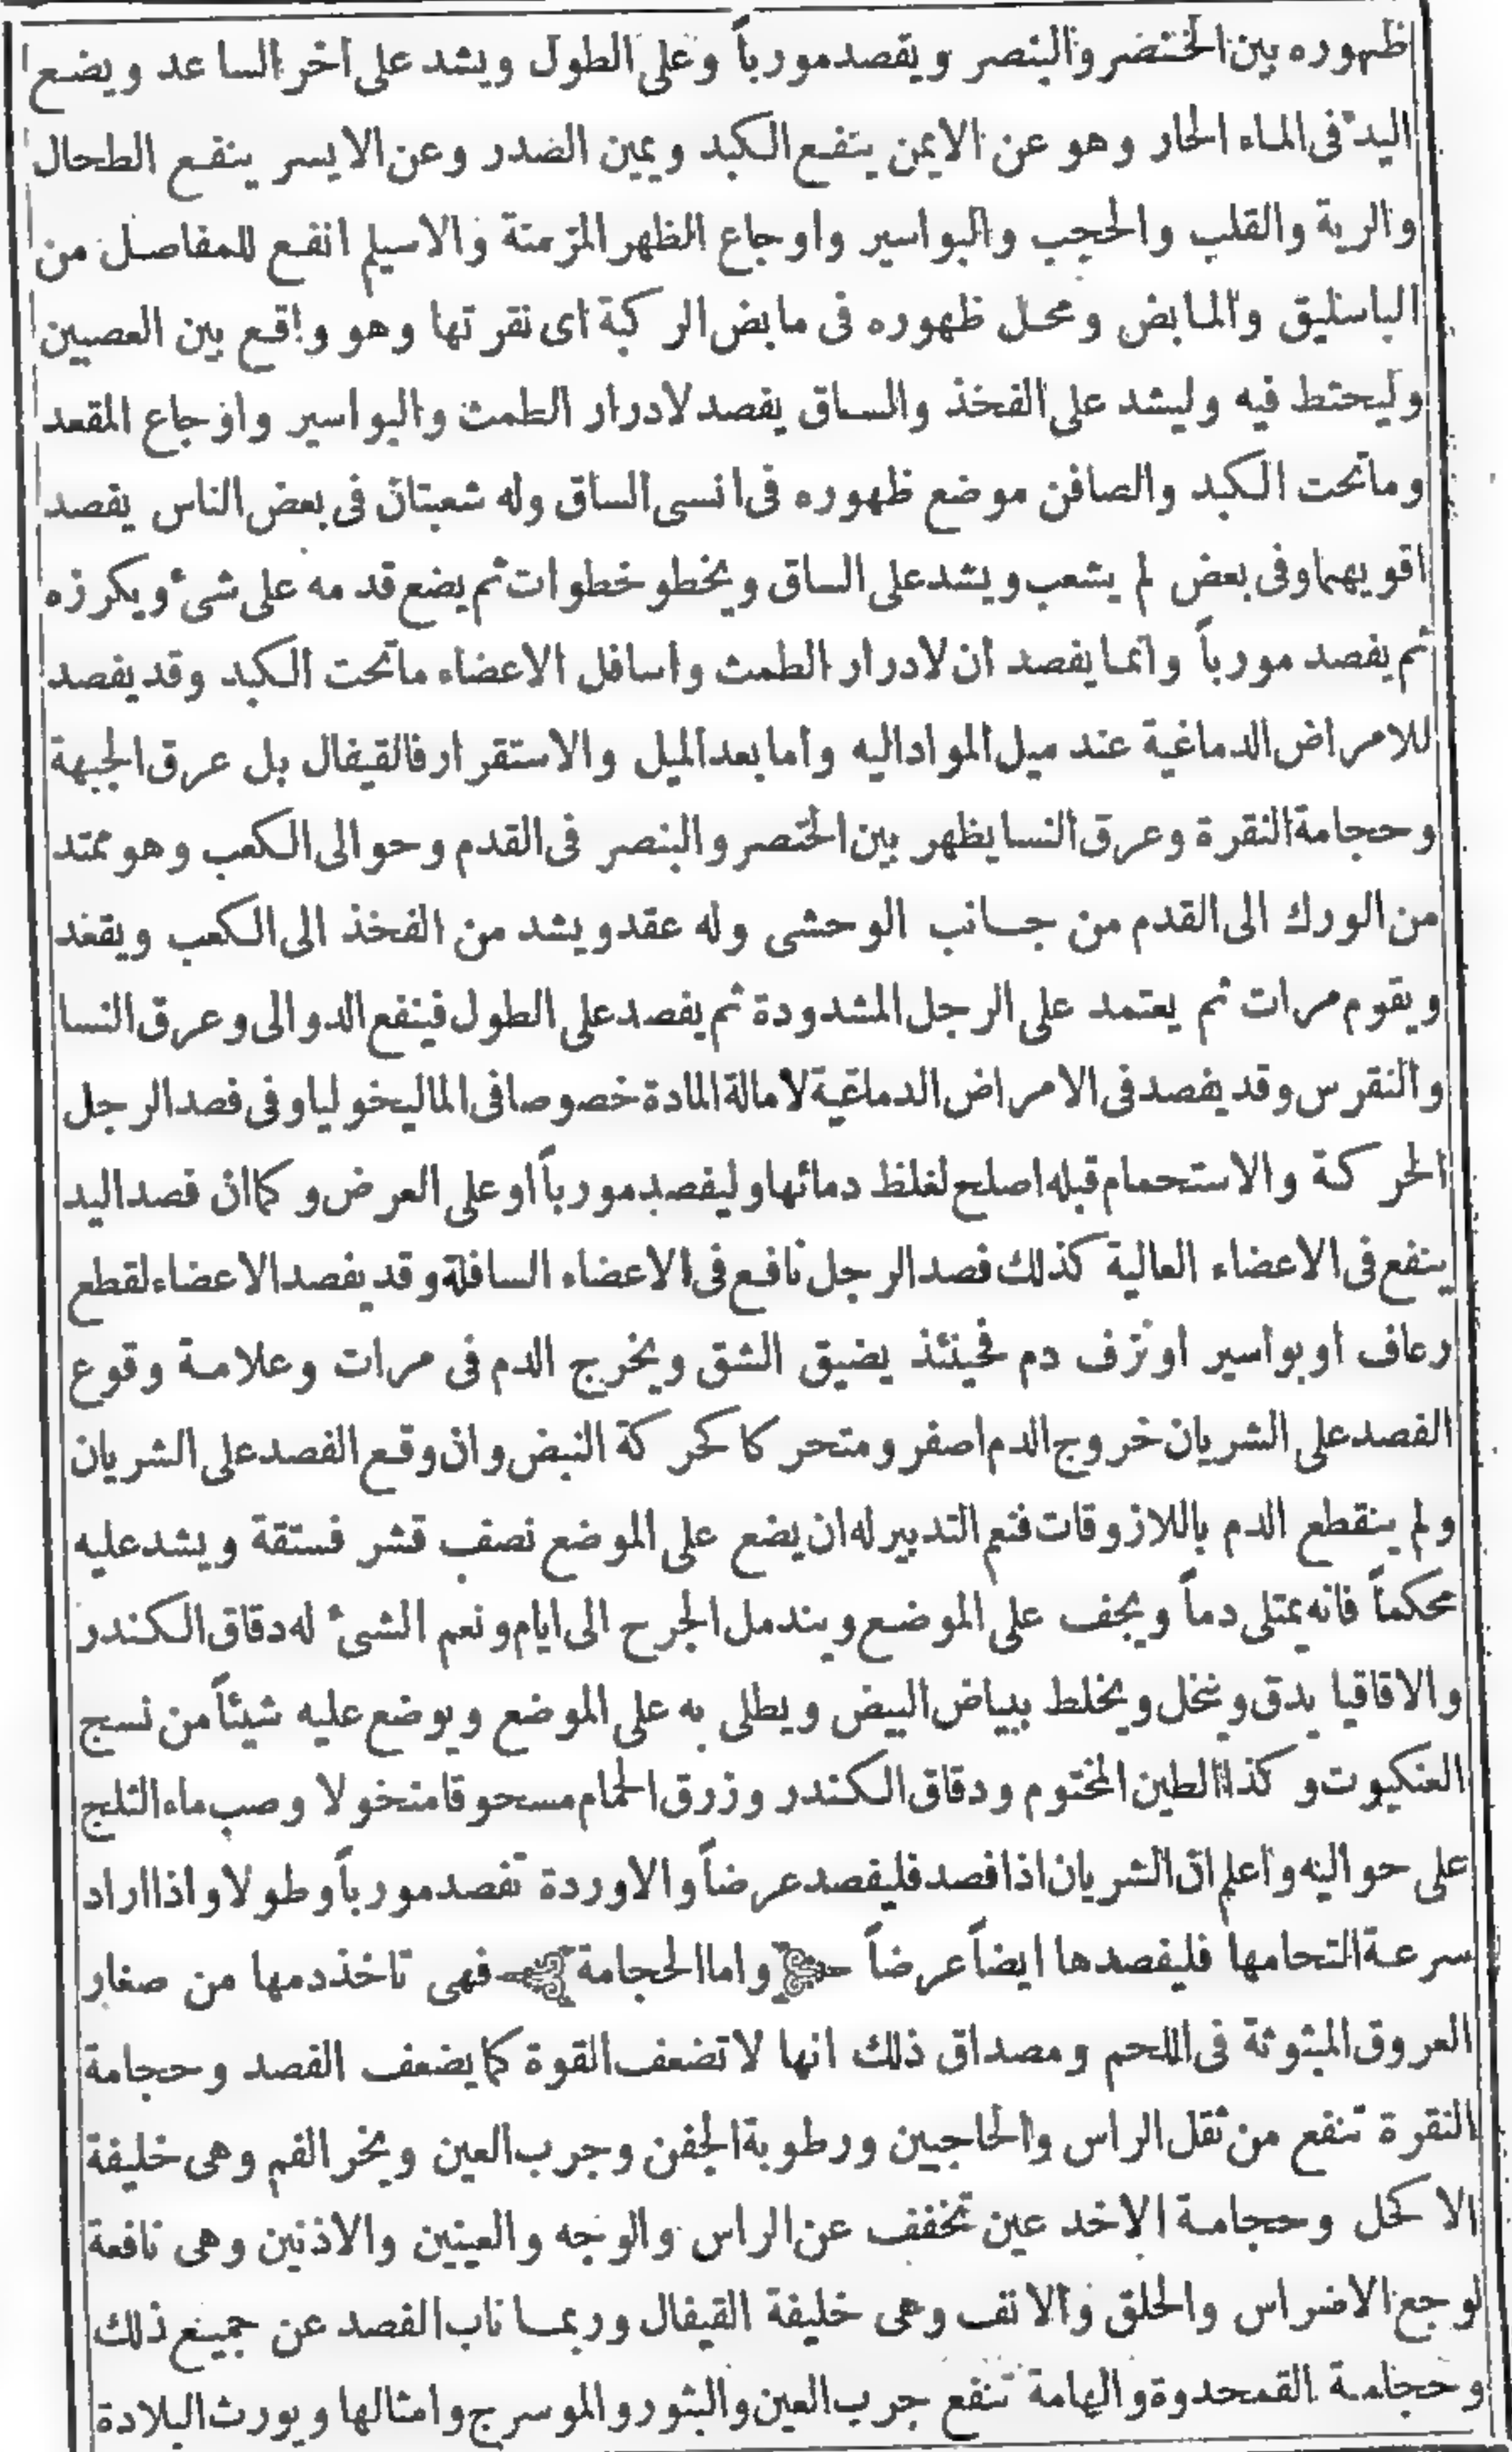 ظهوره بين الخنصر والبنصر ويفصد مورباً وعلى الطول ويشد على آخر الساعد ويضع
اليد فى الماء الحار وهو عن الايمن ينفع الكبد ويمين الصدر وعن الايسر ينفع الطحال
والرية والقلب والحجب والبواسير واوجاع الظهر المزمنة والاسيلم انفع للمفاصل من
الباسليق والمابض ومحل ظهوره فى مابض الركبة اى نقرتها وهو واقع بين العصبين
وليحتط فيه وليشد على الفخذ والساق يفصد لادرار الطمث والبواسير واوجاع المقعد
وما تحت الكبد والصافن موضع ظهوره فى انسى الساق وله شعبتان فى بعض الناس يفصد
اقويهما وفى بعض لم يشعب ويشد على الساق ويخطو خطوات ثم يضع قدمه على شئ ويكرزه
ثم يفصد مورباً وانما يفصد ان لادرار الطمث واسافل الاعضاء ما تحت الكبد وقد يفصد
للامراض الدماغية عند ميل المواد اليه واما بعد الميل والاستقرار فالقيفال بل عرق الجبهة
وحجامة النقرة وعرق النسا يظهر بين الخنصر والبنصر فى القدم وحوالى الكعب وهو ممتد
من الورك الى القدم من جانب الوحشى وله عقد ويشد من الفخذ الى الكعب ويقعد
ويقوم مرات ثم يعتمد على الرجل المشدودة ثم يفصد على الطول فينفع الدوالى وعرق النسا
والنقرس وقد يفصد فى الامراض الدماغية لامالة المادة خصوصا فى الماليخوليا وفى فصد الرجل
الحركة والاستحمام قبله اصلح لغلظ دمائها وليفصد مورباً او على العرض وكما ان فصد اليد
ينفع فى الاعضاء العالية كذلك فصد الرجل نافع فى الاعضاء السافلة وقد يفصد الاعضاء لقطع
رعاف او بواسير او نزف دم فحينئذ يضيق الشق ويخرج الدم فى مرات وعلامة وقوع
الفصد على الشريان خروج الدم اصفر ومتحركا كحركة النبض وان وقع الفصد على الشريان
ولم ينقطع الدم باللازوقات فنعم التدبير له ان يضع على الموضع نصف قشر فستقة ويشد عليه
محكماً فانه يمتلى دماً ويجف على الموضع ويندمل الجرح الى ايام ونعم الشئ له دقاق الكندر
والاقاقيا يدق وينخل ويخلط ببياض البيض ويطلى به على الموضع ويوضع عليه شيئاً من نسج
العنكبوت وكذا الطين المختوم ودقاق الكندر وزرق الحمام مسحوقا منخولا وصب ماء الثلج
على حواليه واعلم ان الشريان اذا فصد فليفصد عرضاً والاوردة تفصد مورباً وطولا واذا اراد
سرعة التحامها فليفصدها ايضاً عرضاً ﴿واما الحجامة﴾ فهى تاخذ دمها من صغار
العروق المبثوثة فى اللحم ومصداق ذلك انها لا تضعف القوة كما يضعف الفصد وحجامة
النقرة تنفع من ثقل الراس والحاجبين ورطوبة الجفن وجرب العين وبخر الفم وهى خليفة
الاكحل وحجامة الاخدعين تخفف عن الراس والوجه والعينين والاذنين وهى نافعة
لوجع الاضراس والحلق والانف وهى خليفة القيفال وربما ناب الفصد عن جميع ذلك
وحجامة القمحدوة والهامة تنفع جرب العين والبثور والموسرج وامثالها ويورث البلادة